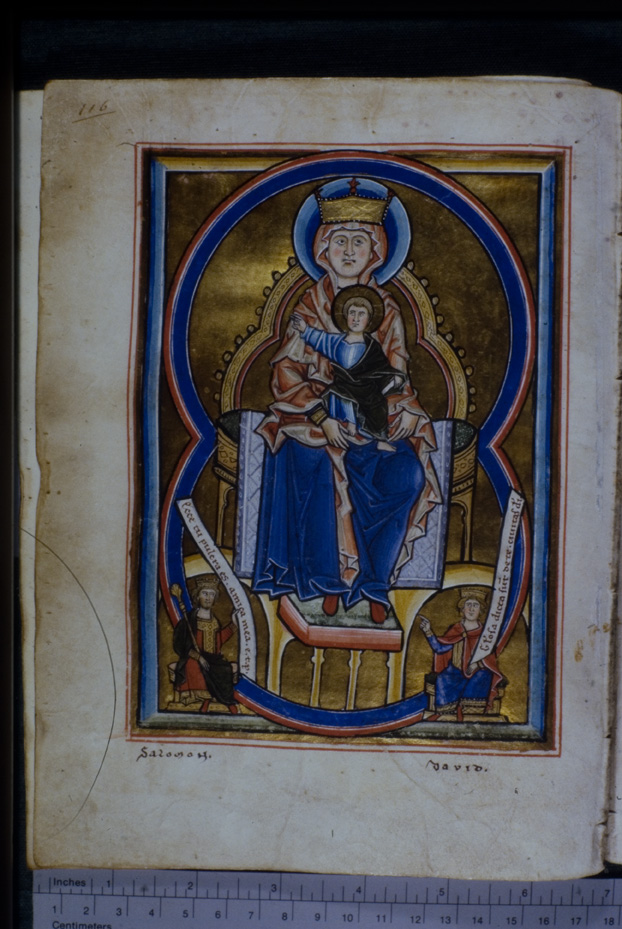 116
Ecce tu pulcra es. amica mea. e. tu
Gl'osa dicta sūt de te. ciuitas di
Salomon.
David.
Inches 1 2 3 4 5 6 7
1 2 3 4 5 6 7 8 9 10 11 12 13 14 15 16 17 18
Centimeters